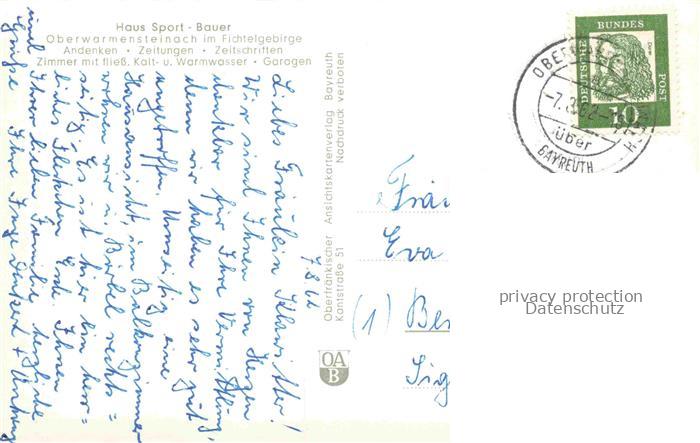 Haus Sport - Bauer
Oberwarmensteinach im Fichtelgebirge
Andenken • Zeitungen • Zeitschriften
Zimmer mit fließ. Kalt- u. Warmwasser • Garagen
7.8.62
Liebes Fräulein Klawitter!
Wir sind Ihnen von Herzen
dankbar für Ihre Vermittlung,
denn wir haben es sehr gut
angetroffen. Umseitig eine
Hausansicht, im Balkonzimmer
wohnen wir u. Bärbel rechts=
seitig. Es ist hier ein herr=
liches Fleckchen Erde. Ihnen
und Ihrer lieben Familie herzliche
Grüße Ihre
Oberfränkischer Ansichtskartenverlag Bayreuth
Kantstraße 51 Nachdruck verboten
OA
B
DEUTSCHE
BUNDES
POST
Dürer
10
-7.8.62-
über
BAYREUTH
Eva
(1)
privacy protection
Datenschutz